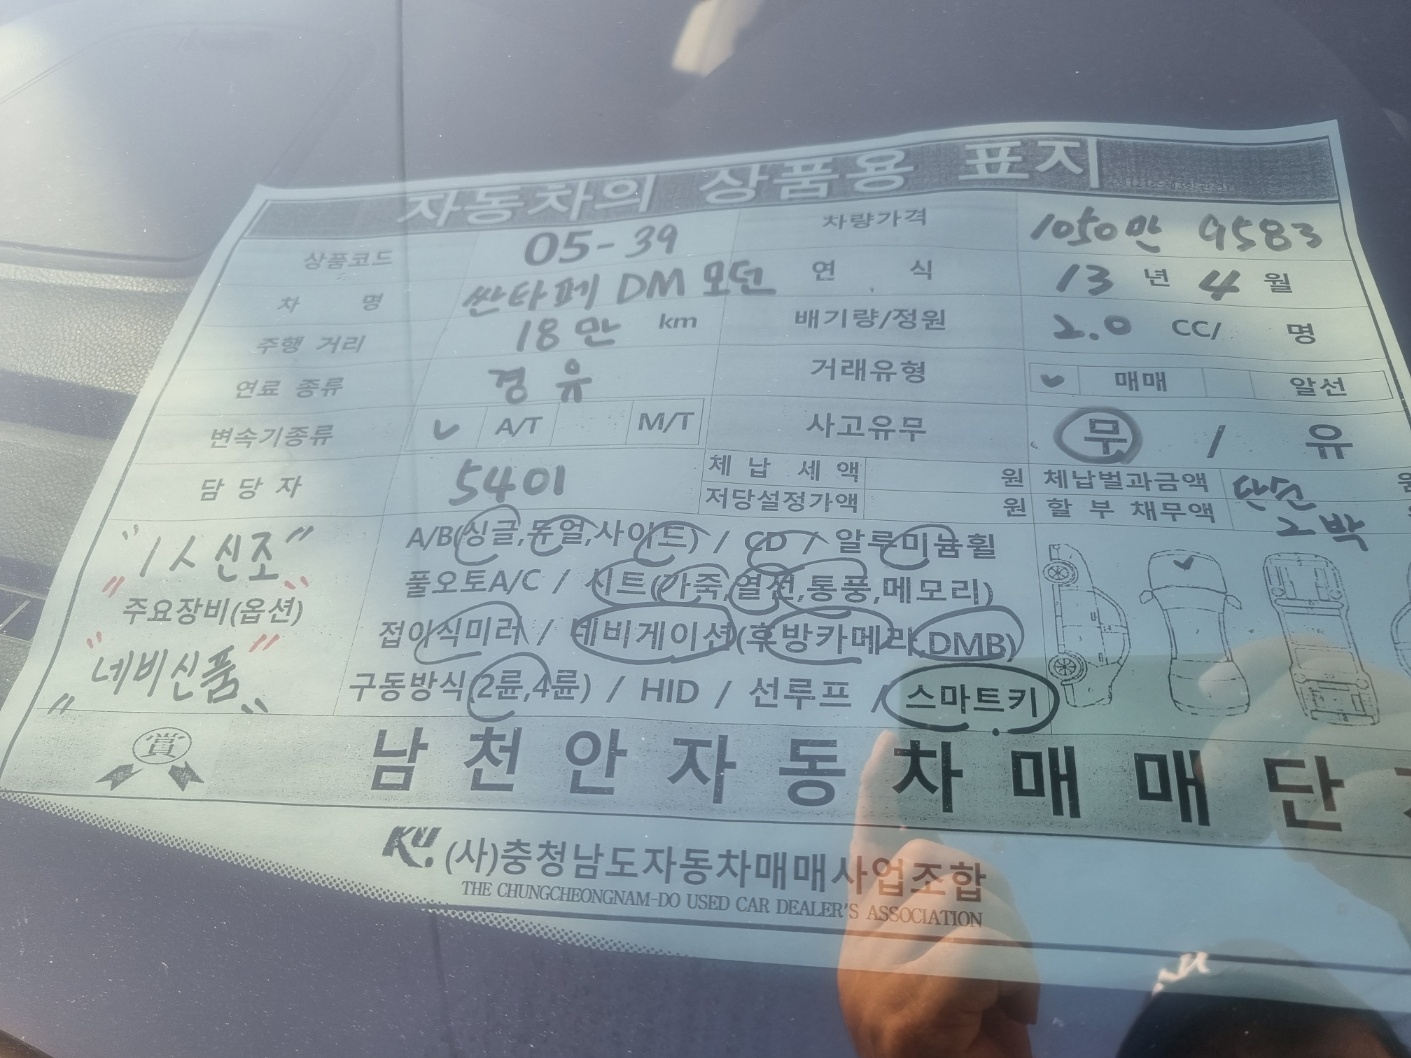 자동차의 상품용 표지
상품코드 05-39 차량가격 1050만 9583
차 명 싼타페 DM 모던 연 식 13 년 4 월
주행 거리 18만 km 배기량/정원 2.0 CC/ 명
연료 종류 경유 거래유형 ✓ 매매 알선
변속기종류 ✓ A/T M/T 사고유무 무 / 유
담 당 자 5401 체 납 세 액 원 체납벌과금액 단순
저당설정가액 원 할 부 채무액
"1人신조"
주요장비(옵션)
"네비신품"
A/B(싱글,듀얼,사이드) / CD / 알루미늄휠
풀오토A/C / 시트(가죽,열선,통풍,메모리)
접이식미러 / 네비게이션(후방카메라,DMB)
구동방식(2륜,4륜) / HID / 선루프 / 스마트키
賞
남천안자동차매매단
KU. (사)충청남도자동차매매사업조합
THE CHUNGCHEONGNAM-DO USED CAR DEALER'S ASSOCIATION